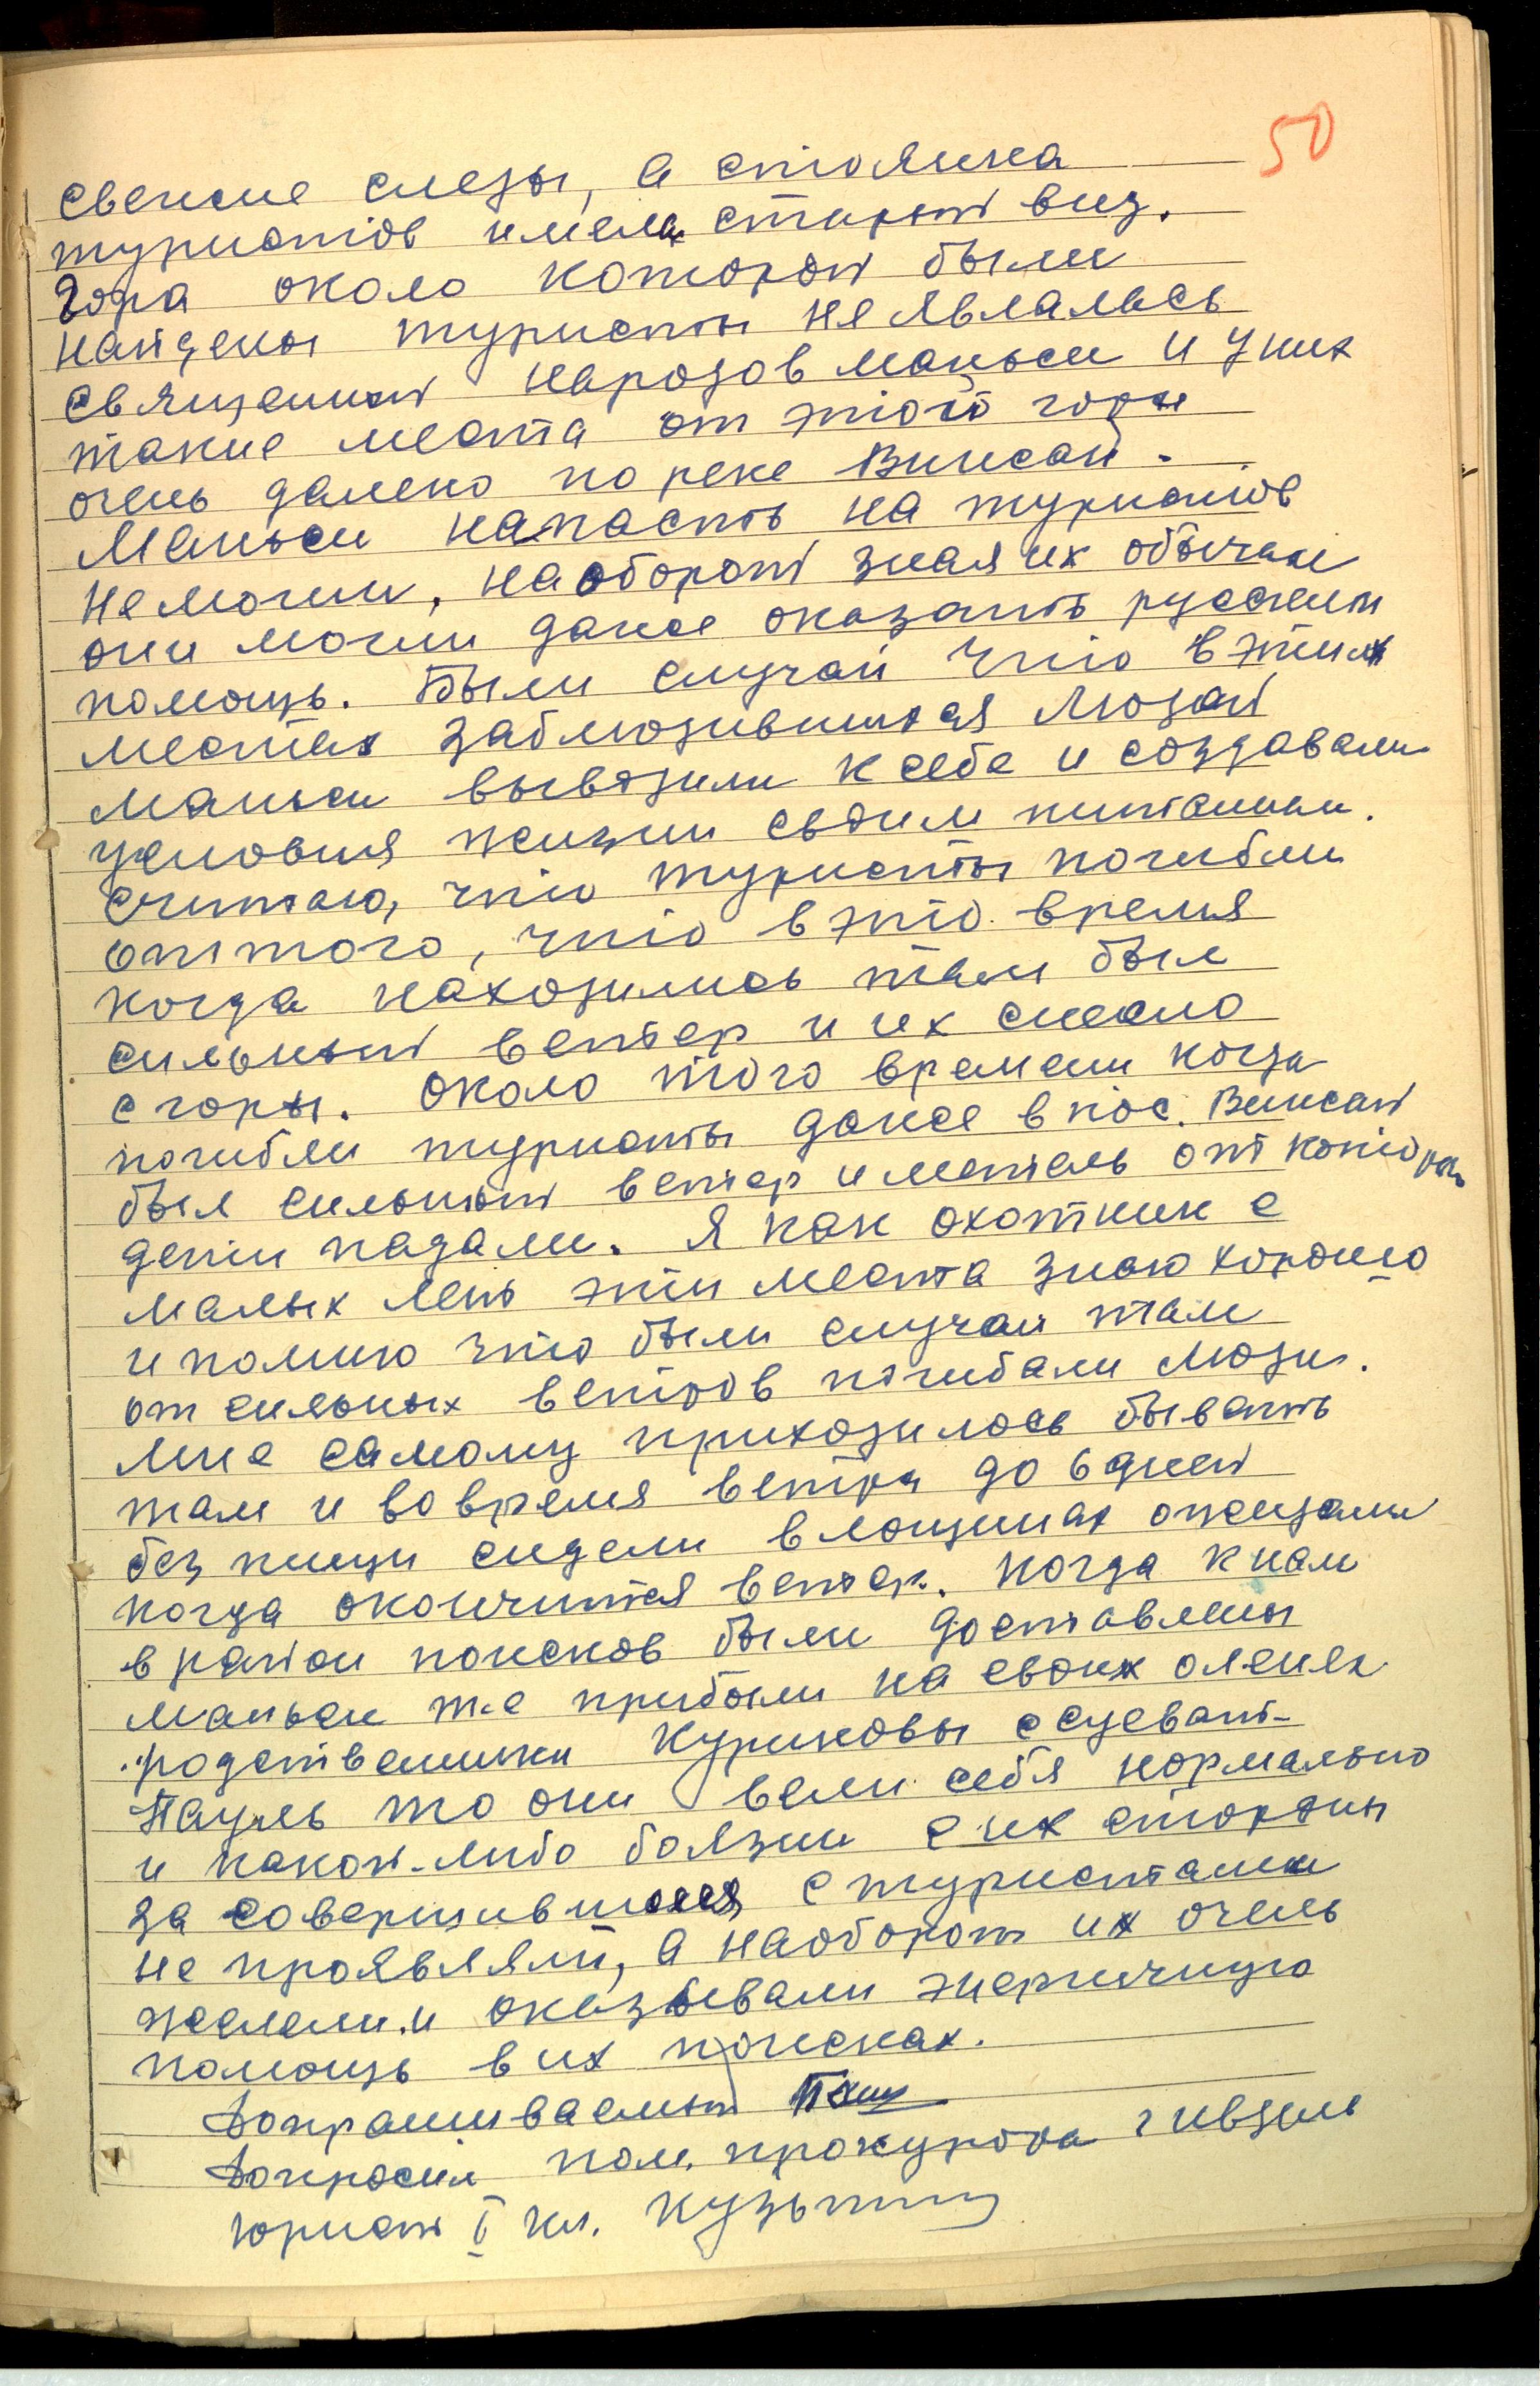 50
свежие следы, а стоянка
туристов имела старый вид.
Гора около которой были
найдены туристы не являлась
священной народов маньси и у них
такие места от этого горы
очень далеко по реке Вижай.
Маньси напасть на туристов
не могли, наоборот зная их обычаи
они могли даже оказать русским
помощь. Были случаи что в этих
местах заблюдившихся людей
маньси вывозили к себе и создавали
условия жизни своим питанием.
Считаю, что туристы погибли
от того, что в это время
когда находились там был
сильный ветер и их снесло
с горы. Около того времени когда
погибли туристы даже в пос. Вижай
был сильный ветер и метель от которых
дети падали. Я как охотник с
малых лет эти места знаю хорошо
и помню что были случаи там
от сильных ветров погибали люди.
Мне самому приходилось бывать
там и во время ветра до 6 дней
без пищи сидели в лощинах ожидали
когда окончится ветер. Когда к нам
в район поисков были доставлены
маньси т.е прибыли на своих оленях
родственники Куриковы с Суеват-
Пауль то они вели себя нормально
и какой-либо боязни с их стороны
за совершившееся с туристами
не проявляли, а наоборот их очень
жалели и оказывали энергичную
помощь в их поисках.
Допрашиваемый
Допросил пом. прокурора г Ивдель
юрист I кл. Кузьминых